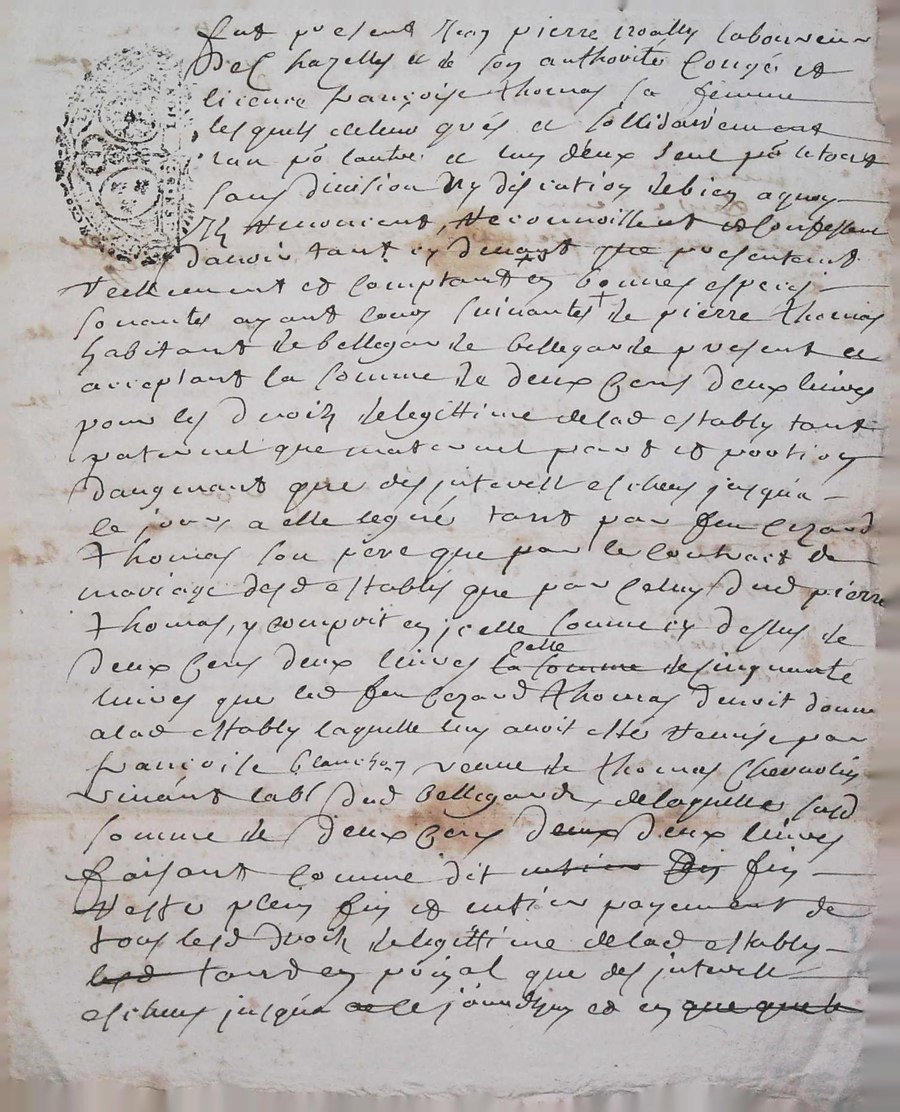 fut present Jean pierre laboureur
Des hazelles et de son authorité Congé et
licence françoise thomas sa femme
lesquels de leur grés et sollidairement
l'un po lautre et un deux seul po le tout
sans division ny discution de bien a quoy
ils renoncent, reconnoissent et confessent
d'avoir tant cy devant que presentement
reellement et comptant en bonnes especes
sonantes ayant cours suivantes de pierre thomas
habitant de bellegarde bellegarde present et
acceptant la somme de deux cens deux livres
pour les droits de legittime de lad establly tant
paternel que maternel part et portion
daugmant que des interest escheus jusqua
ce jour a elle legué tant par feu Cezard
thomas son père que par le contract de
mariage desd establis que par celuy dud pierre
thomas, y compris en icelle somme cy dessus de
deux cens deux livres la somme celle de cinquante
livres que led feu Cezard thomas devoit donner
a lad establly laquelle luy avoit esté remise par
francoise blanchon veuve de thomas
vivant dud bellegarde, de laquelle susd
somme de deux cens deux deux livres
faisant comme dit entier fin
reste plein fin et entier payement de
tous lesd droits de legittime de lad establly
lesd tant en pñipal que des interest
escheus jusqua ce jourdhuy et en que que le